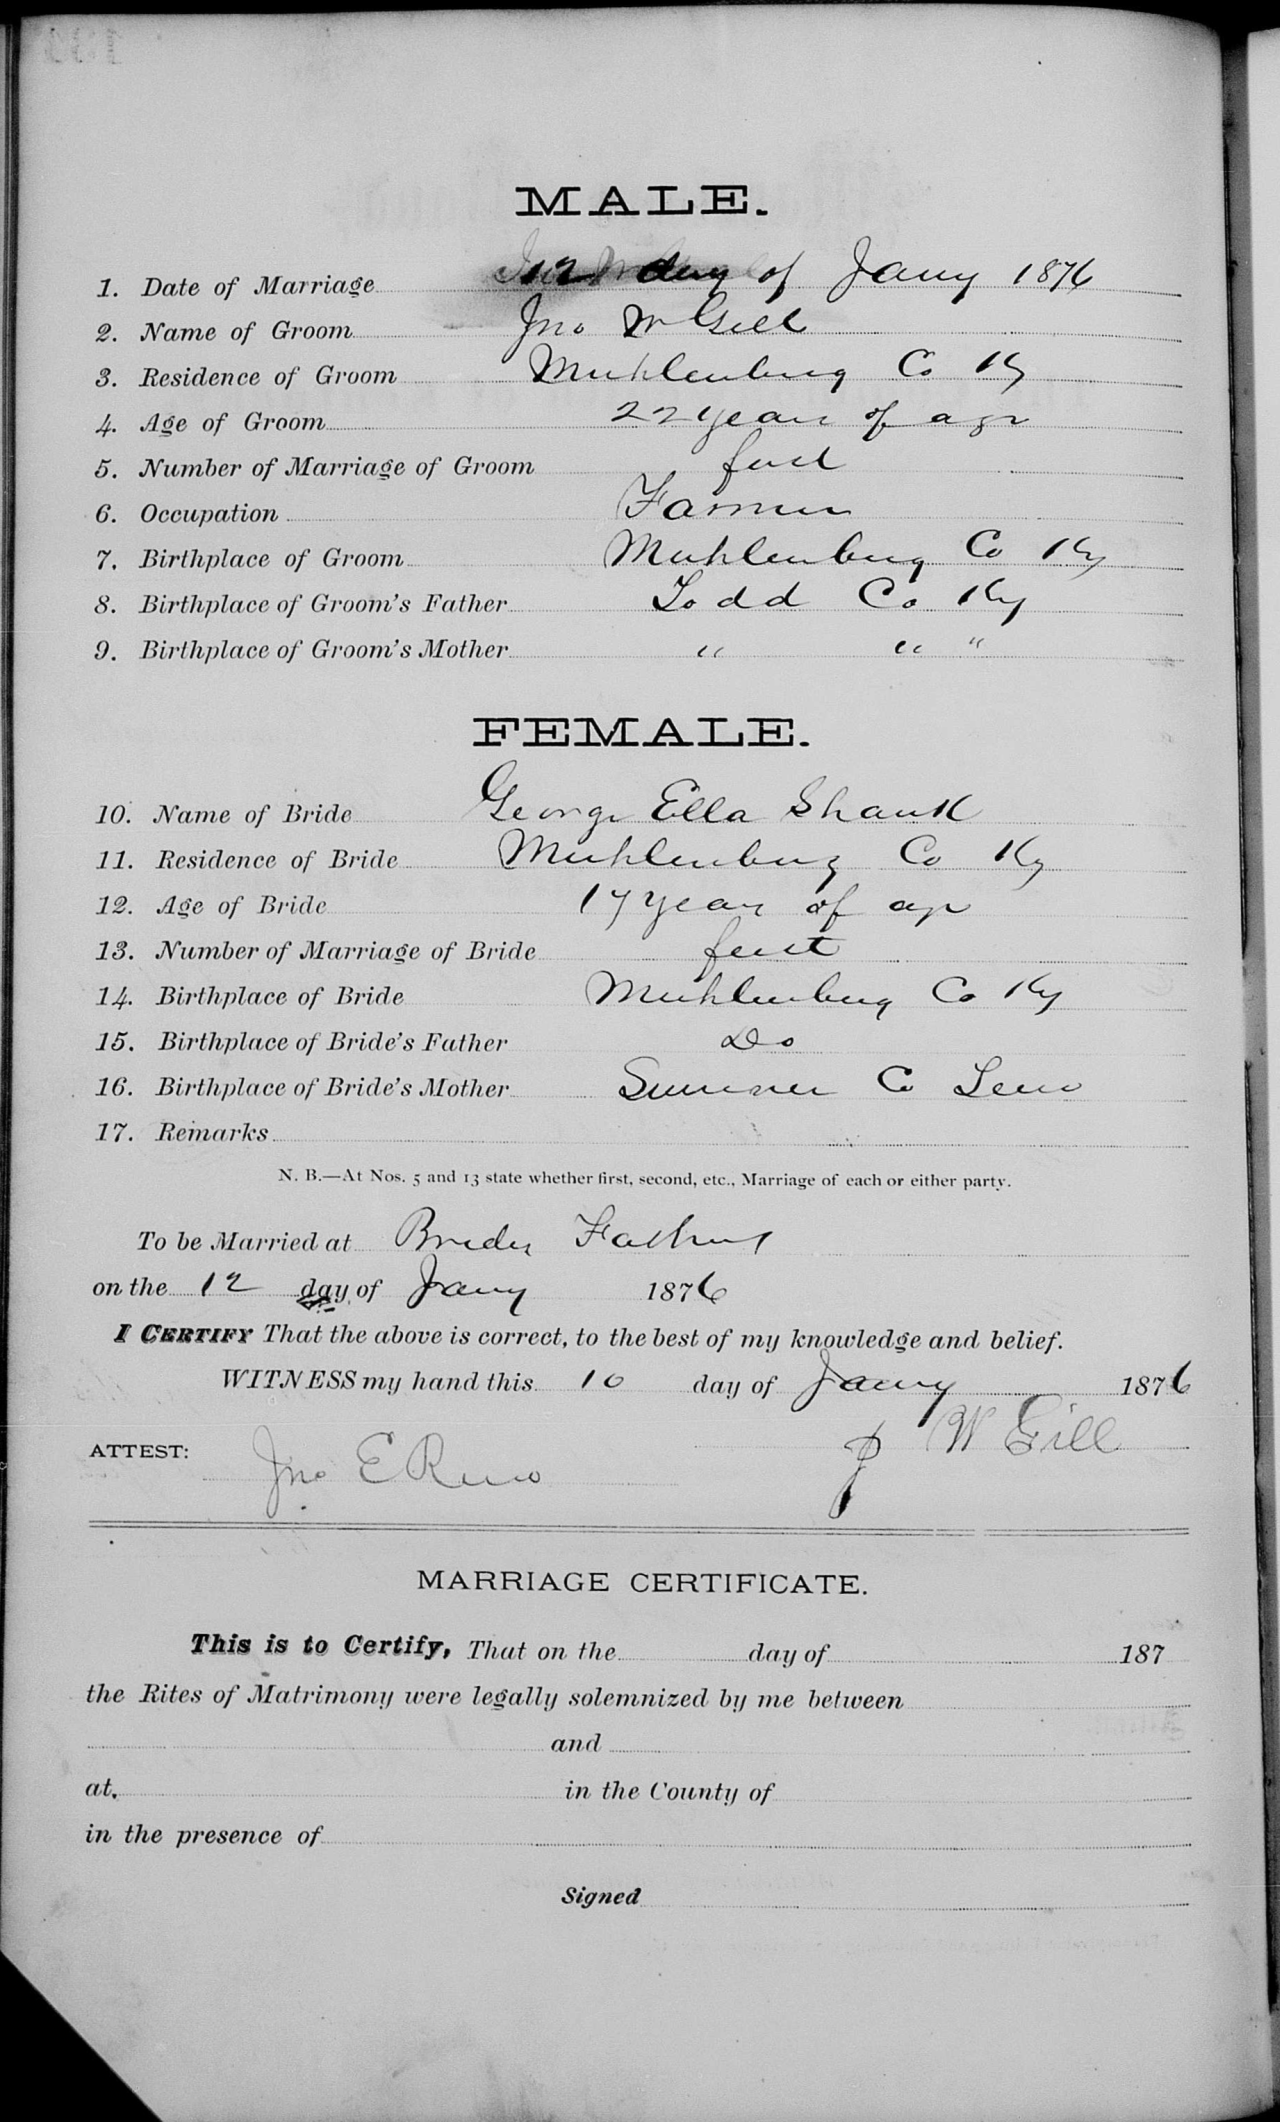 MALE.
1. Date of Marriage 12 day of Jany 1876
2. Name of Groom Jno W Gill
3. Residence of Groom Muhlenburg Co Ky
4. Age of Groom 22 years of age
5. Number of Marriage of Groom first
6. Occupation Farmer
7. Birthplace of Groom Muhlenburg Co Ky
8. Birthplace of Groom's Father Todd Co Ky
9. Birthplace of Groom's Mother " " "
FEMALE.
10. Name of Bride George Ella Shank
11. Residence of Bride Muhlenburg Co Ky
12. Age of Bride 17 years of age
13. Number of Marriage of Bride first
14. Birthplace of Bride Muhlenburg Co Ky
15. Birthplace of Bride's Father Do
16. Birthplace of Bride's Mother Sumner Co Tenn
17. Remarks
N. B.—At Nos. 5 and 13 state whether first, second, etc., Marriage of each or either party.
To be Married at Brides Fathers
on the 12 day of Jany 1876
I CERTIFY That the above is correct, to the best of my knowledge and belief.
WITNESS my hand this 10 day of Jany 1876
J W Gill
ATTEST: Jno E Reno
MARRIAGE CERTIFICATE.
This is to Certify, That on the day of 187
the Rites of Matrimony were legally solemnized by me between
and
at. in the County of
in the presence of
Signed